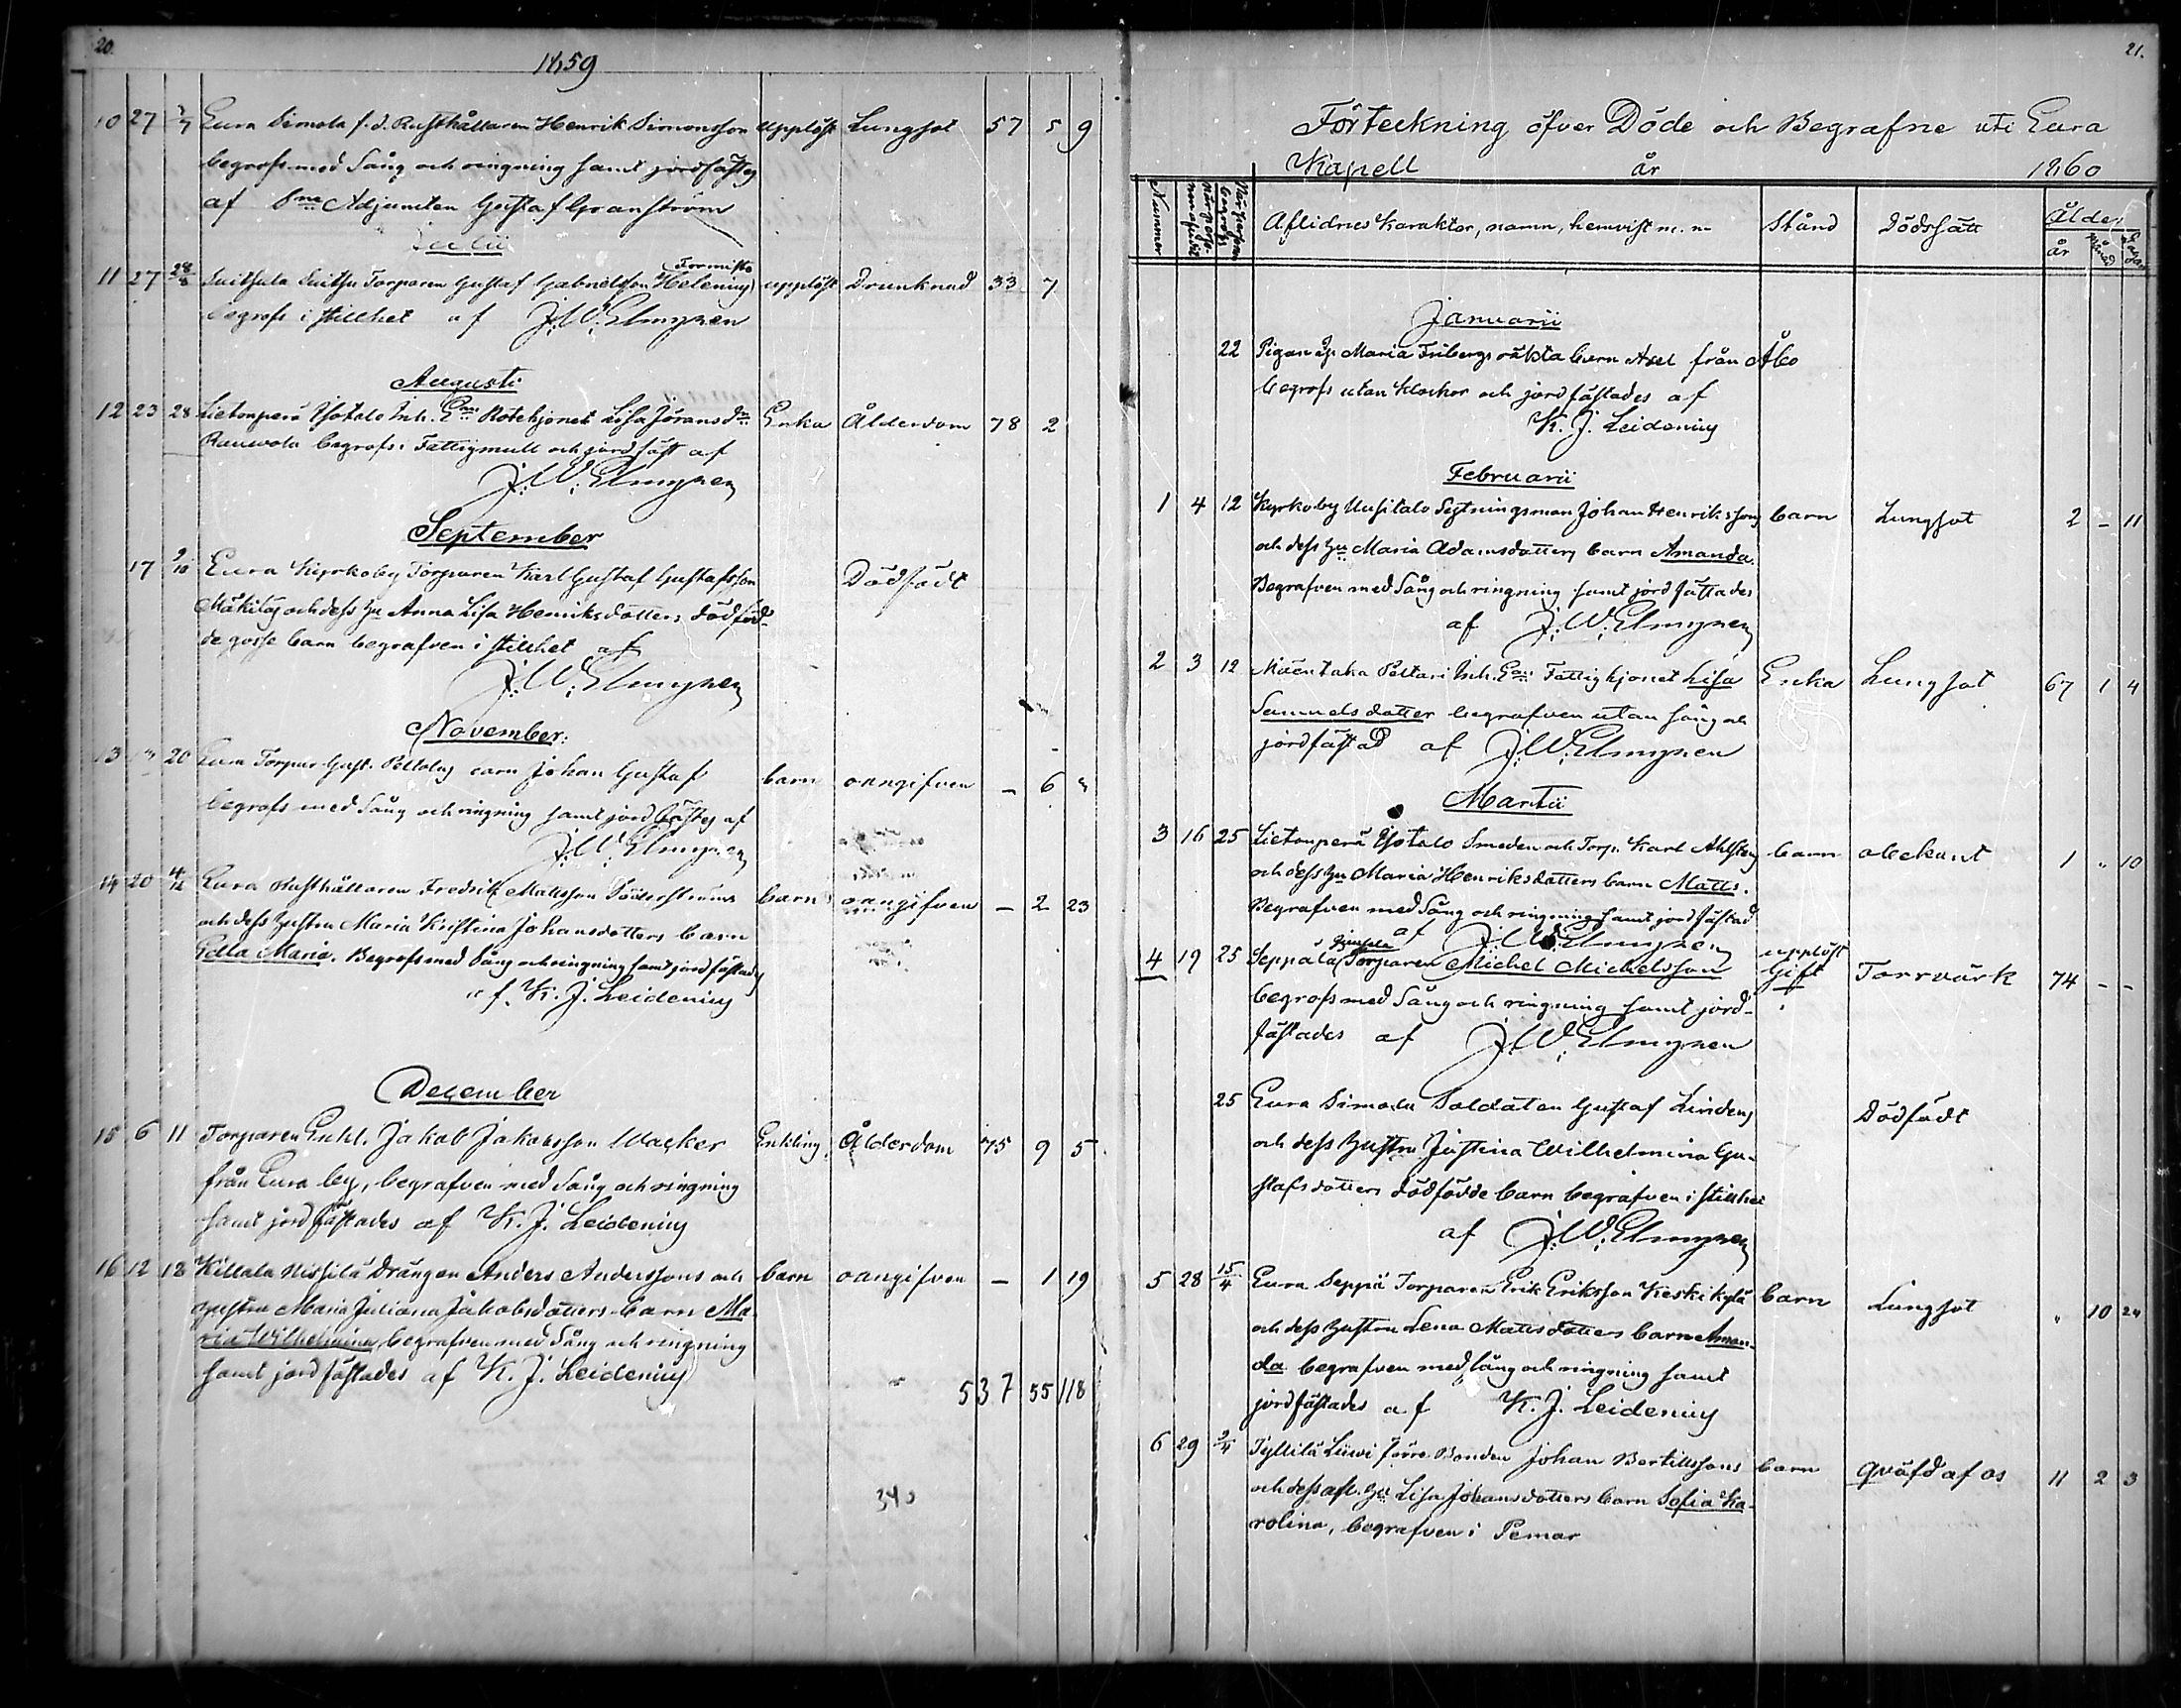 20.
1859
10 27 7/7 Eura Simola f.d. Rusthållaren Henrik Simonsson upplöst Lungsot 57 5 9
begrofs med Sång och ringning samt jordfästes
af Adjuncten Gustaf Granström
Julii
Tormisto
11 27 28/8 Torparen Gustaf Gabrielsson Helenius upplöst Drunknad 33 7
begrofs i stillhet af J. W. Elmgren
Augusti
12 23 28 Lietonperä Isotalo Inh. Rotehjonet Lisa Göransdr Enka Ålderdom 78 2
begrofs i Fattigmull och jordfäst af
J. W. Elmgren
September
17 9/10 Eura Kyrkoby Torparen Karl Gustaf Gustafsson Dödfödt
och dess hu Anna Lisa Henriksdotters dödföd-
de gosse barn begrafven i stillhet af
J. W. Elmgren
November.
13 " 20 Eura Torpar Gust. barn Johan Gustaf barn oangifven – 6 "
begrofs med Sång och ringning samt jordfästes af
J. W. Elmgren
14 20 4/12 Eura Rusthållaren Fredrik Mattsson Söderströms barn oangifven – 2 23
och dess hustru Maria Kristina Johansdotters barn
Maria. Begrofs med Sång och ringning samt jordfästades
af K. J. Leidenius
December
15 6 11 Torparen Enkl. Jakob Jakobsson Wacker Enkling Ålderdom 75 9 5
från Eura by, begrafven med Sång och ringning
samt jordfästades af K. J. Leidenius
16 12 18 Killala Nissilä Drängen Anders Anderssons och barn oangifven – 1 19
hustru Maria Juliana Jakobsdotters barn Ma-
ria Wilhelmina, begrafven med Sång och ringning
samt jordfästades af K. J. Leidenius
537 55 118
340
21.
Förteckning öfver Döde och Begrafne uti Eura
Kapell år 1860
Nummer Aflidnes Karakter, namn, hemvist m. m. Stånd Dödssätt Ålder
år månad dagar
Januarii
22 Pigan Maria Fribergs oäkta barn Axel från Åbo
begrofs utan klockor och jordfästades af
K. J. Leidenius
Februarii
1 4 12 Kyrkoby Uusitalo Sytningsman Johan Henrikssons barn Lungsot 2 – 11
och dess hu Maria Adamsdotters barn Amanda.
Begrafven med Sång och ringning samt jordfästades
af J. W. Elmgren
2 3 12 Mäentaka Peltari Inh. Fattighjonet Lisa Enka Lungsot 67 1 4
Samuelsdotter begrafven utan sång och
jordfästad af J. W. Elmgren
Martii
3 16 25 Lietonperä Isotalo Smeden och Torp. Karl Ahlstens barn obekant 1 " 10
och dess hu Maria Henriksdotters barn Matts.
Begrafven med Sång och ringning samt jordfästad
af J. W. Elmgren
4 19 25 Seppälä Torparen Michel Michelsson upplöst Gift Torrvärk 74 – –
begrofs med Sång och ringning samt jord-
fästades af J. W. Elmgren
25 Eura Simola Soldaten Gustaf Lindens Dödfödt
och dess hustru Justina Wilhelmina Gu-
stafsdotters dödfödde barn begrafven i stillhet
af J. W. Elmgren
5 28 15/4 Eura Seppä Torparen Erik Eriksson Keskikylä barn Lungsot " 10 24
och dess hustru Lena Mattsdotters barn Aman-
da begrafven med sång och ringning samt
jordfästades af K. J. Leidenius
6 29 9/4 Tyllilä Liuvi förre Bonden Johan Bertillssons barn qväfd af os 11 2 3
och dess afl. hu Lisa Johansdotters barn Sofia Ka-
rolina, begrafven i Pemar